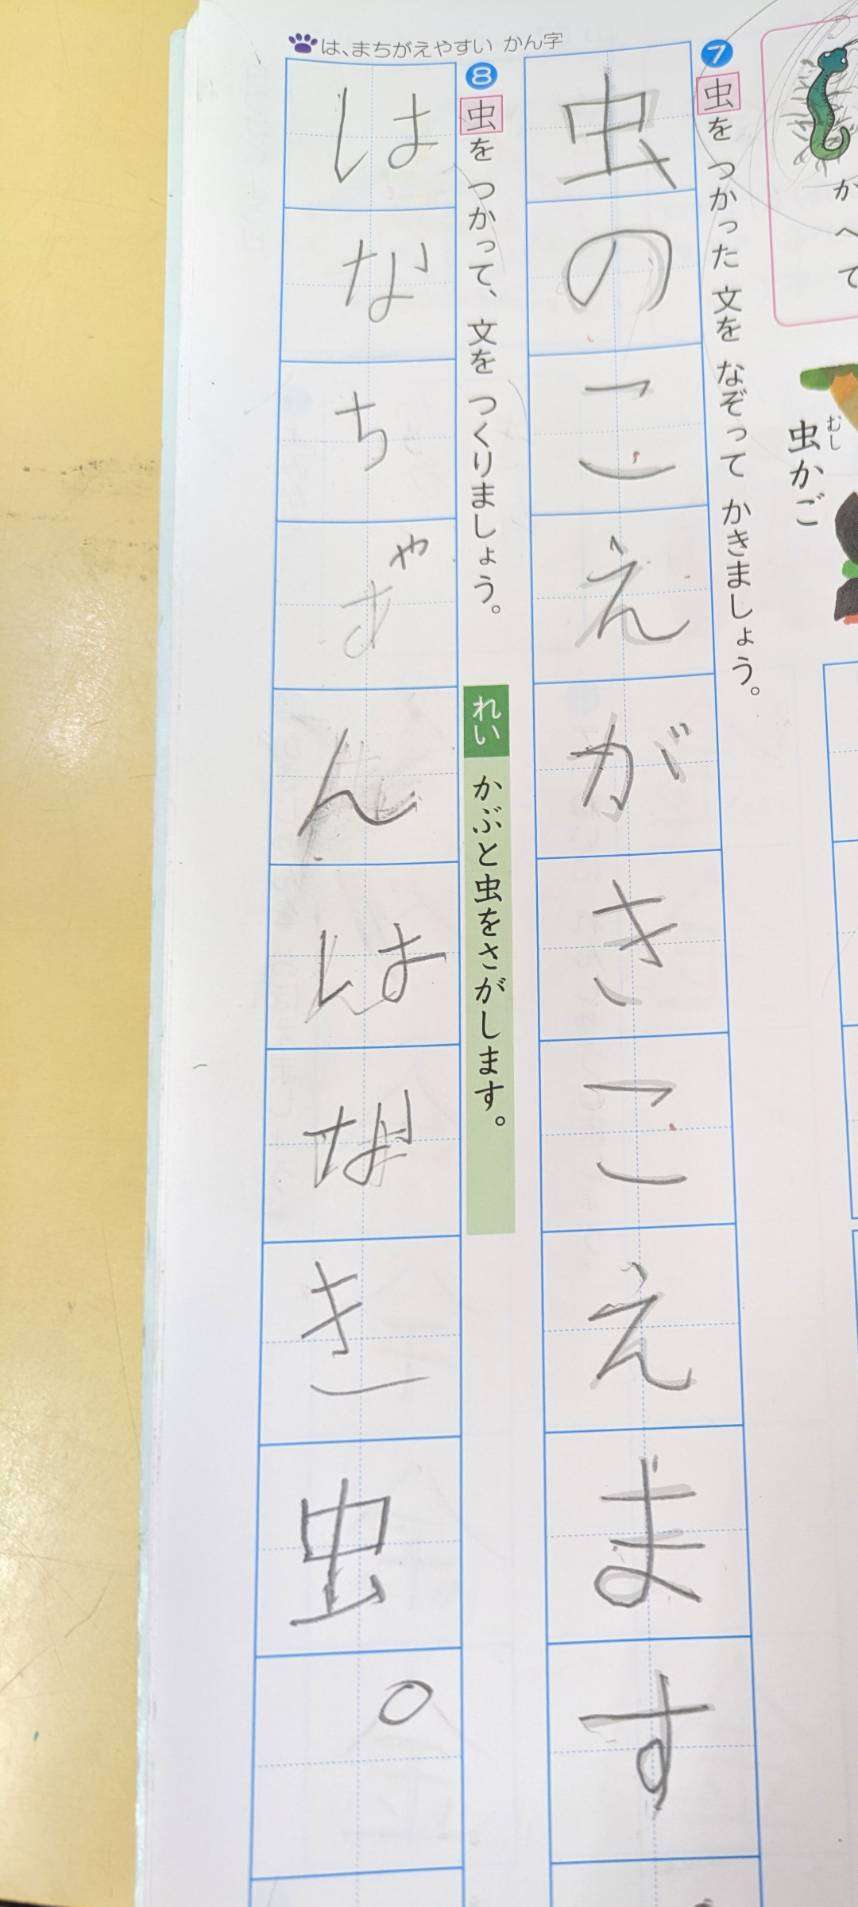 かへて
むし
虫かご
❼ 虫を つかった 文を なぞって かきましょう。
虫のこえがきこえます
❽ 虫を つかって、文を つくりましょう。
れい かぶと虫をさがします。
はなち
ゃ
んはなき虫。
は、まちがえやすい かん字